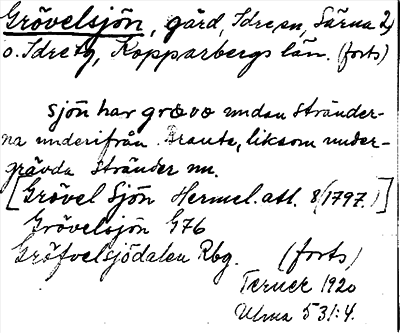 Grövelsjön, gård, Idre sn, Särna 2)
o. Idre tg, Kopparbergs län. (forts)
sjön har grøvø undan stränder-
na underifrån. Branta, liksom under-
grävda stränder nu.
[Grövel Sjön Hermel. atl. 8 (1797.)]
Grövelsjön G76
Gröfvelsjödalen Rbg. (forts)
Terner 1920
Ulma 531:4.